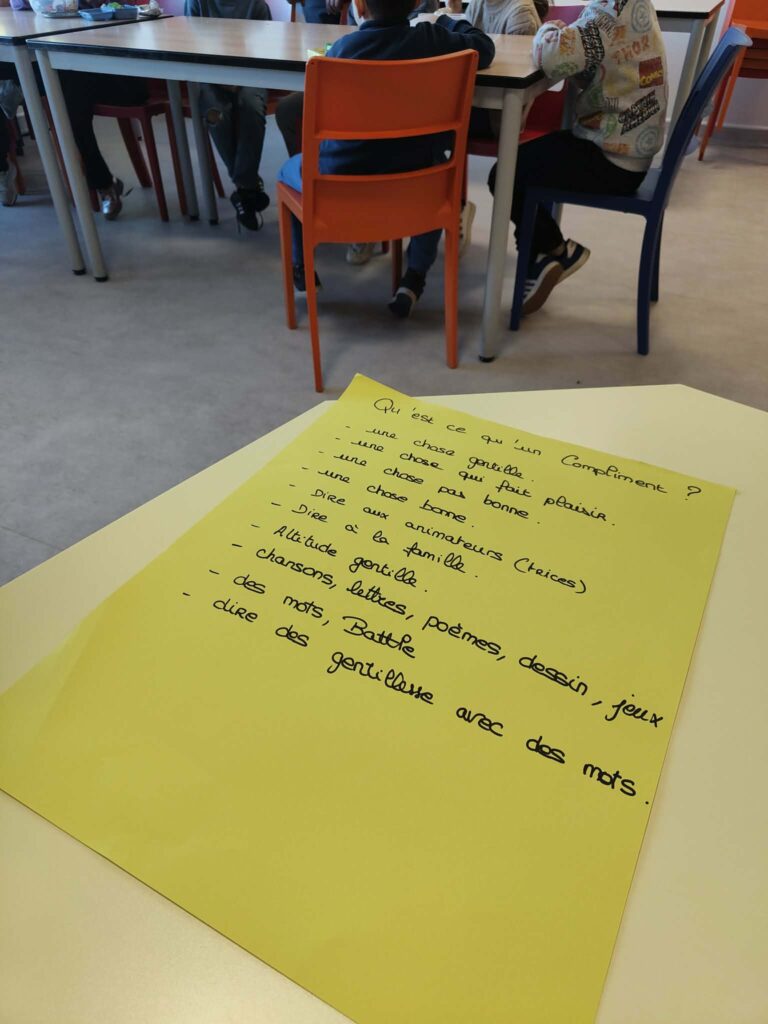 THOR
COMICS
Qu'est ce qu'un Compliment ?
- une chose gentille.
- une chose qui fait plaisir.
- une chose pas bonne.
- une chose bonne.
- Dire aux animateurs (trices)
- Dire à la famille.
- Altitude gentille.
- chansons, lettres, poèmes, dessin, jeux
- des mots, Battle
- dire des gentillesse avec des mots.